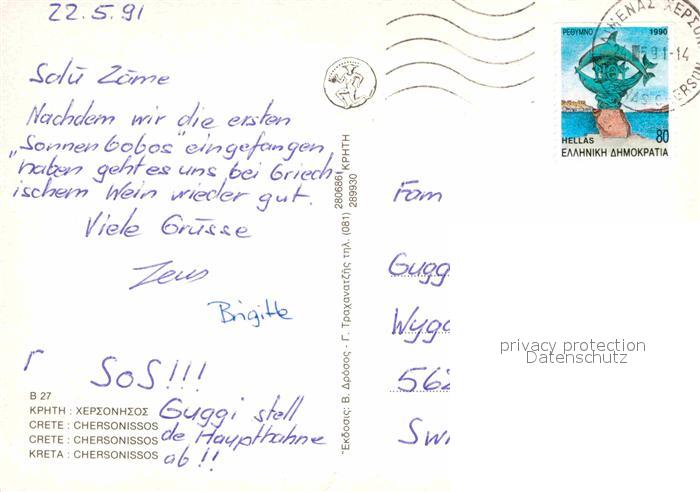 22.5.91
Salü Zäme
Nachdem wir die ersten
„Sonnenbobos" eingefangen
haben geht es uns bei Griech-
ischem Wein wieder gut.
Viele Grüsse
Brigitte
SOS!!!
Guggi stell
de Haupthahne
ab!!
B 27
ΚΡΗΤΗ : ΧΕΡΣΟΝΗΣΟΣ
CRETE : CHERSONISSOS
CRETE : CHERSONISSOS
KRETA : CHERSONISSOS
Ἐκδόσεις: Β. Δρόσος - Γ. Τραχανατζής τηλ. (081) 280686 289930 ΚΡΗΤΗ
ΡΕΘΥΜΝΟ 1990
HELLAS 80
ΕΛΛΗΝΙΚΗ ΔΗΜΟΚΡΑΤΙΑ
Fam
Gugg
Wyga
562
Swi
privacy protection
Datenschutz